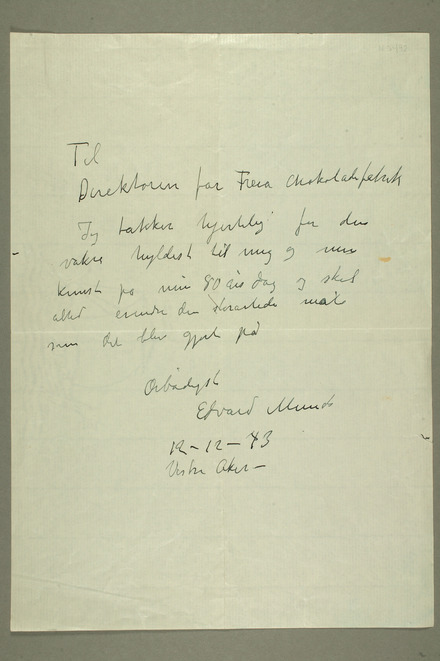 Til
Direktøren for Freia Chokoladefabrik
Jeg takker hjertelig for den
vakre hyldest til mig og min
kunst på min 80 års dag og skal
altid erindre den storartede mål
som det blev gjort på
Ærbødigst
Edvard Munch
12–12–43
Vestre Aker –